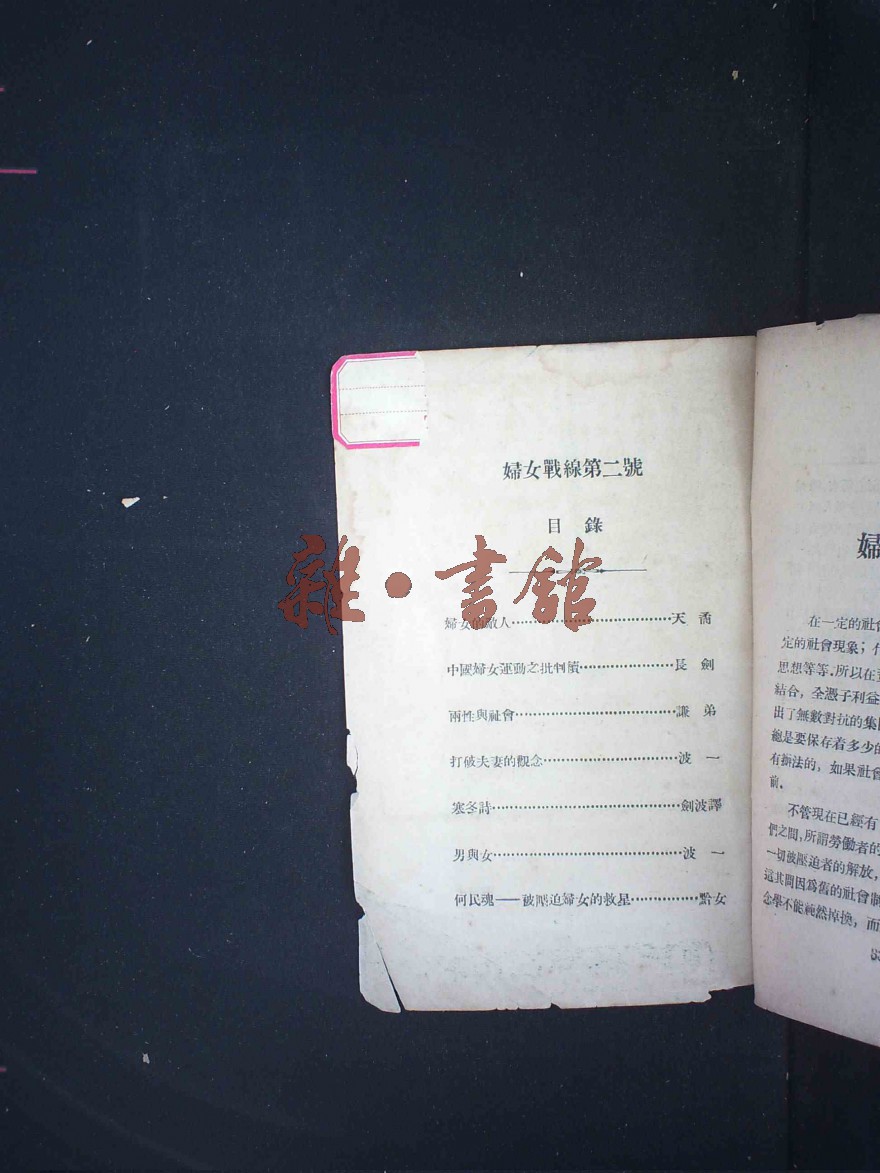 婦女戰線第二號
目錄
雜·書館
婦女的敵人……天矞
中國婦女運動之批判續……長劍
兩性與社會……謙弟
打破夫妻的觀念……波一
寒冬詩……劍波譯
男與女……波一
何民魂——被壓迫婦女的救星……黔女
婦
在一定的社會
定的社會現象；
思想等等，所以在
結合，全憑子利益
出了無數對抗的集
總是要保存着多少的
有辦法的，如果社會
前。
不管現在已經有
們之間，所謂勞働者的
一切被壓迫者的解放，
這其間因爲舊的社會制
念學不能純然掉換，而